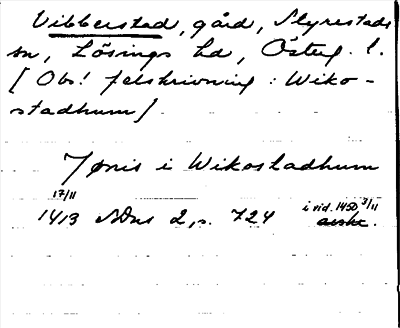 Vibberstad, gård, Styrestads
sn, Lösings hd, Östg. l.
[Obs! felskrivning: Wiko-
stadhum]
Jønis i Wikostadhum
17/11
1413 SDns 2, s. 724 i vid. 1450 3/11
avskr.